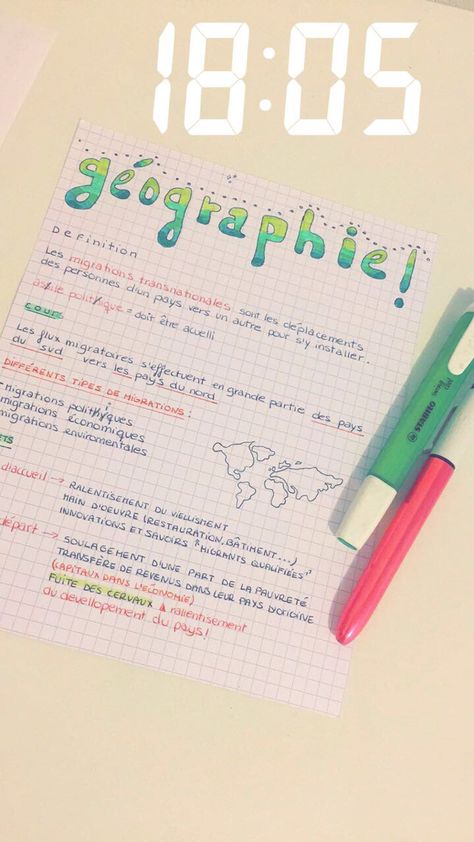 18:05
géographie!
Definition
Les migrations transnationales sont les déplacements
des personnes d'un pays vers un autre pour s'y installer.
asile politique = doit être acueilli
cours
Les flux migratoires s'effectuent en grande partie des pays
du sud vers les pays du nord
DIFFÉRENTS TYPES DE MIGRATIONS :
- migrations politiques
migrations économiques
migrations enviromentales
ETS
d'accueil → RALENTISEMENT DU VIELLISMENT
MAIN D'OEUVRE (RESTAURATION, BÂTIMENT...)
INNOVATIONS ET SAVOIRS "MIGRANTS QUALIFIÉES"
départ → SOULAGEMENT D'UNE PART DE LA PAUVRETÉ
TRANSFÈRE DE REVENUS DANS LEUR PAYS D'ORIGINE
(CAPITAUX DANS L'ÉCONOMIE)
FUITE DES CERVAUX ⚠ ralientisement
du devellopement du pays!
STABILO
swing cool